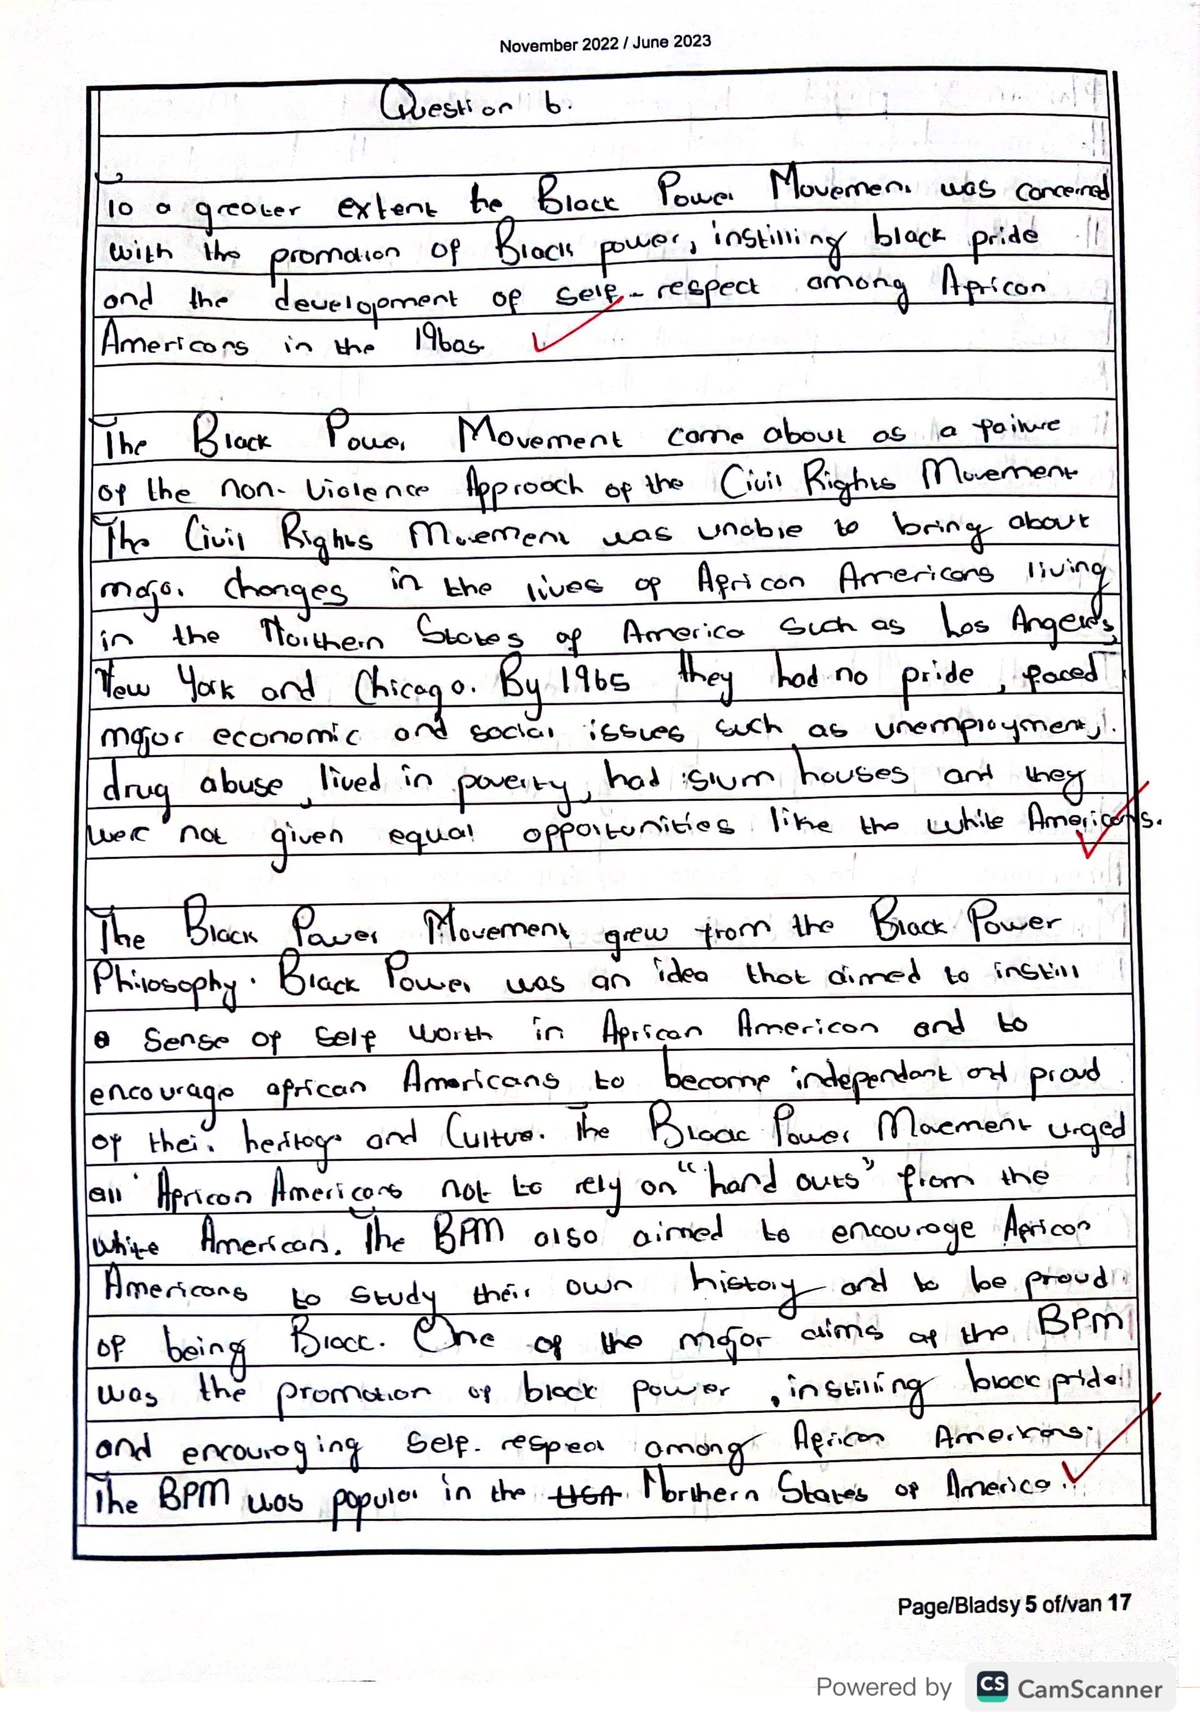 November 2022 / June 2023
Question 6.
To a greater extent the Black Power Movement was concerned
with the promotion of Black power, instilling black pride
and the development of self-respect among African
Americans in the 1960s.
The Black Power Movement came about as a failure
of the non-Violence Approach of the Civil Rights Movement
The Civil Rights Movement was unable to bring about
major changes in the lives of African Americans living
in the Northern States of America such as Los Angeles,
New York and Chicago. By 1965 they had no pride, faced
major economic and social issues such as unemployment,
drug abuse, lived in poverty, had slum houses and they
were not given equal opportunities like the white Americans.
The Black Power Movement grew from the Black Power
Philosophy. Black Power was an idea that aimed to instill
a sense of self worth in African American and to
encourage african Americans to become independant and proud
of their heritage and Culture. The Black Power Movement urged
all African Americans not to rely on "hand outs" from the
white American. The BPM also aimed to encourage African
Americans to study their own history and to be proud
of being Black. One of the major aims of the BPM
was the promotion of black power, instilling black pride
and encouraging self-respect among African Americans.
The BPM was popular in the USA Northern States of America.
Page/Bladsy 5 of/van 17
Powered by CS CamScanner